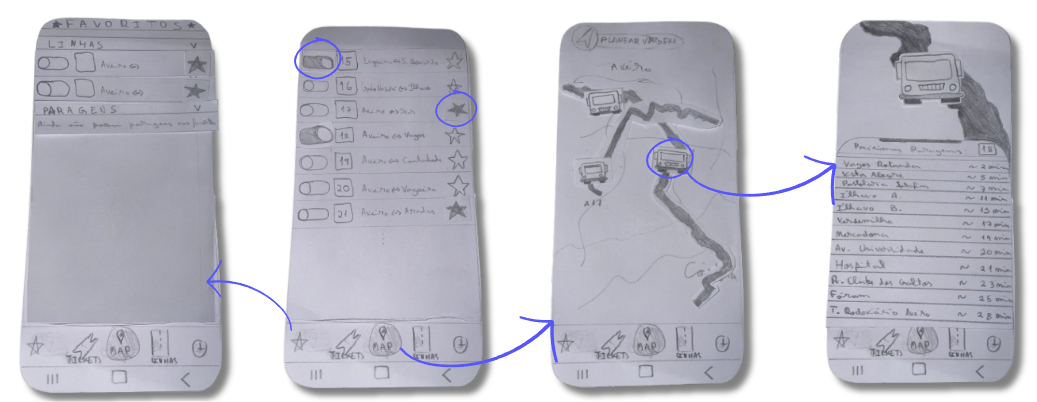 ★FAVORITOS★
LINHAS
Aveiro
Aveiro
PARAGENS
Ainda não
TICKETS
MAP
LINHAS
15
16
17
Aveiro
18
Aveiro Vagos
19
Aveiro
20
Aveiro
21
Aveiro
TICKETS
MAP
LINHAS
PLANEAR VIAGEM
Aveiro
A17
TICKETS
MAP
LINHAS
Próximas Paragens 18
Vagos Rotunda ~ 2 min
Vista Alegre ~ 5 min
~ 7 min
Ílhavo A. ~ 11 min
Ílhavo B. ~ 15 min
Verdemilho ~ 17 min
Mercadona ~ 19 min
Av. Universidade ~ 20 min
Hospital ~ 21 min
R. Clube dos Galitos ~ 23 min
Fórum ~ 25 min
T. Rodoviário Aveiro ~ 28 min
TICKETS
MAP
LINHAS